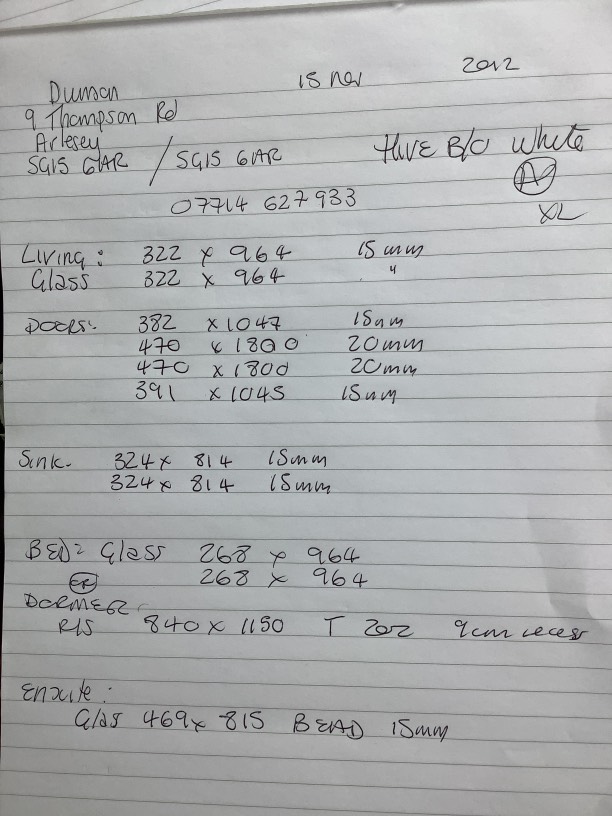 Duman 15 nov 2022
9 Thompson Rd
Arlesey
SG15 6AR / SG15 6AR HIVE B/O White
07714 627933
XL
Living: 322 x 964 15mm
Glass 322 x 964 "
DOORS: 382 x 1047 15mm
470 x 1800 20mm
470 x 1800 20mm
391 x 1045 15mm
Sink. 324 x 814 15mm
324 x 814 15mm
BED2 Glass 268 x 964
268 x 964
DORMER
R/S 840 x 1150 T 9cm recess
Ensuite:
Glas 469 x 815 BEAD 15mm